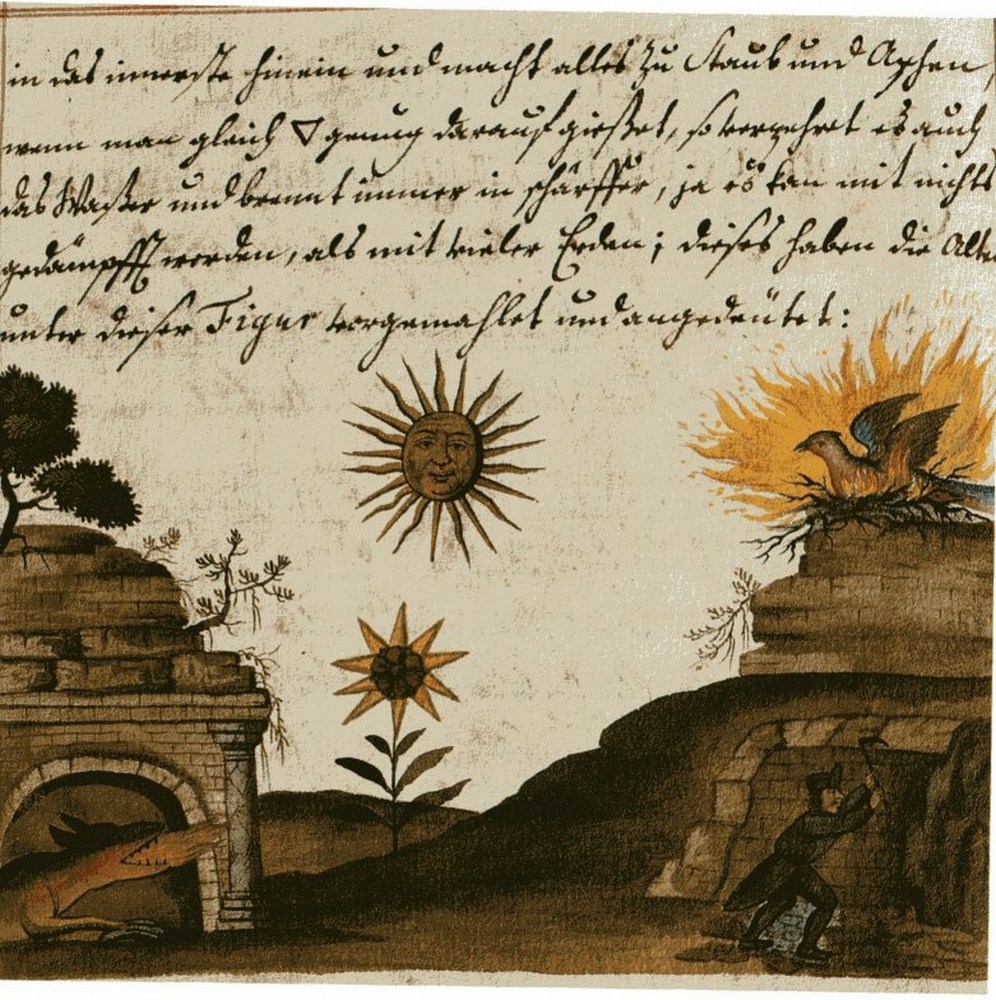 in das innerste hinein und macht alles zu Staub und Aschen,
wenn man gleich 🜄 genung darauf gießet, so verzehret es auch
das Waßer und brennt immer in schärffer, ja es kan mit nichts
gedämpfft werden, als mit vieler Erden; dieses haben die Alten
unter dieser Figur vorgemahlet und angedeütet: